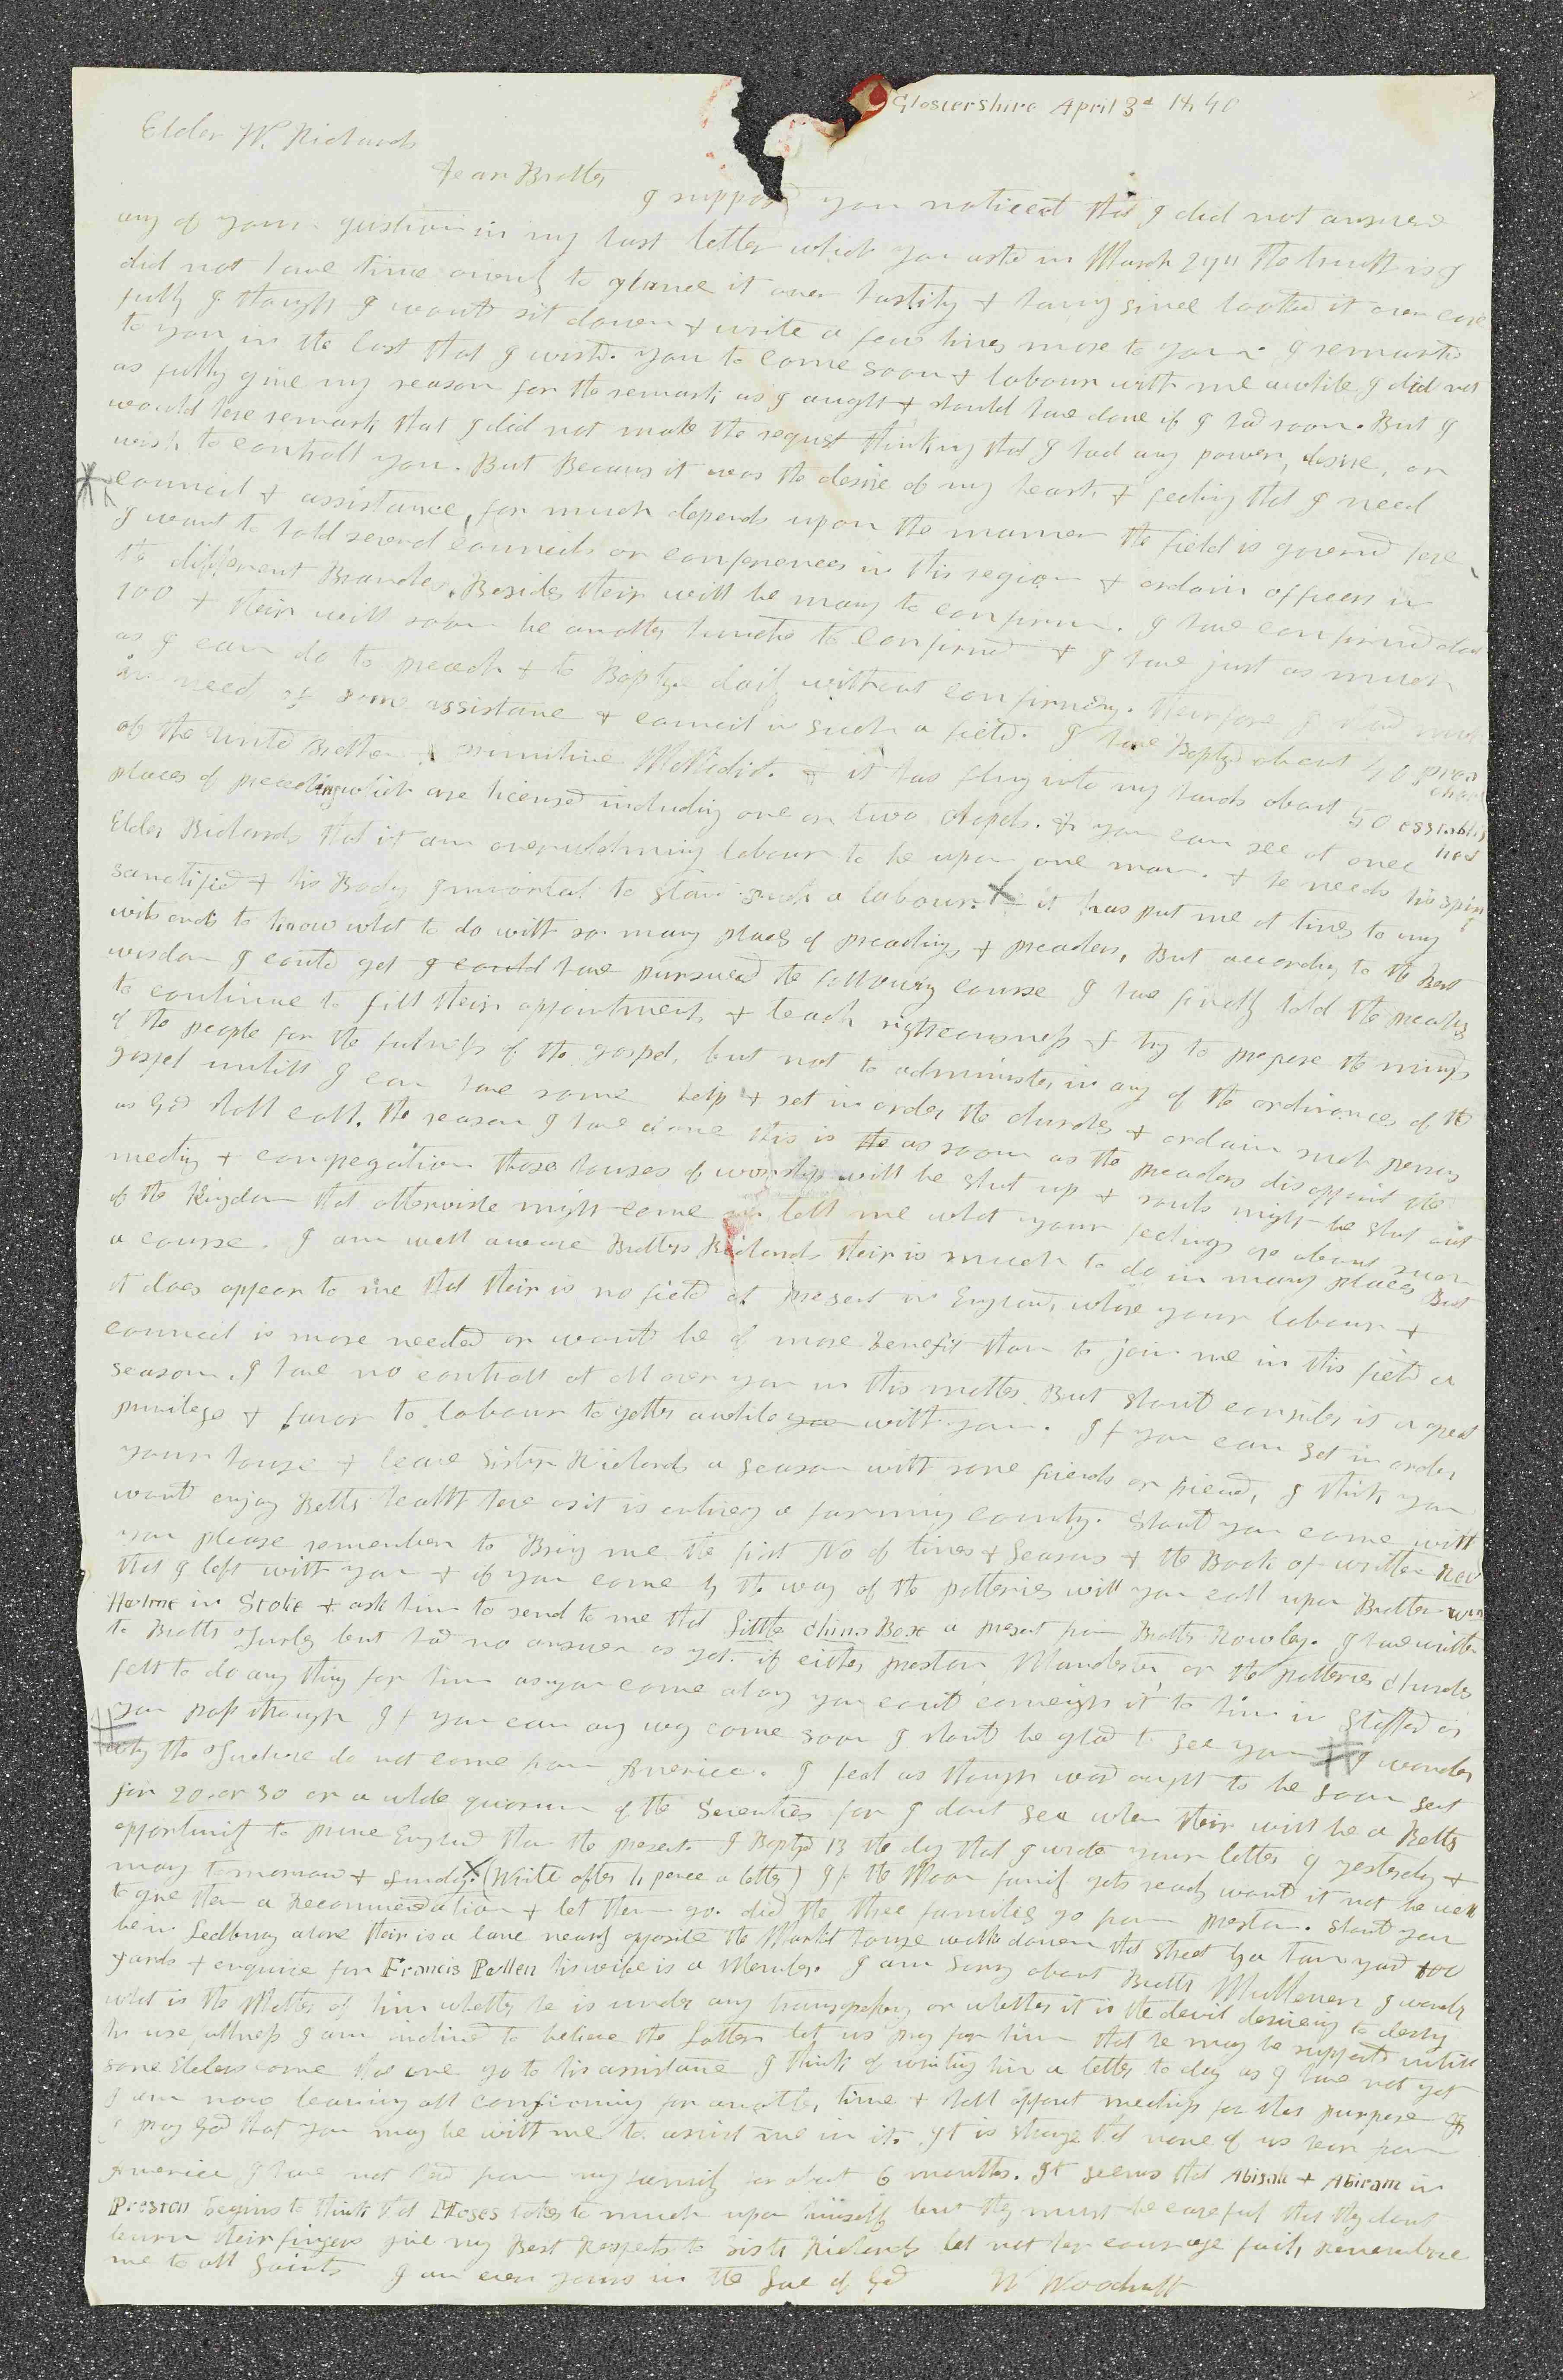 Glostershire April 3d 1840
Elder W. Richards
Dear Brother
I suppose you noticed that I did not answer
any of your question in my last letter which you asted in March 29th the truth is I
did not have time ownly to glance it over hastily & having since looked it over care
fully I though I would sit down & write a few lines more to you. I remarked
to you in the last that I wish you to come soon & labour with me awhile I did not
as fully give my reason for the remark as I aught & should have done if I had room. But I
would here remark that I did not make the request thinking that I had any power, desire, or
wish to controll you. But Becaus it was the desire of my heart & feeling that I need
council & assistance, for much depends upon the manner the field is governd here
I want to hold several councils or conferences in this region & ordain officers in
the different Branches. Besides their will be many to confirm. I have confirmd about
100 & their will soon be another hundred to confirmed & I have just as much
as I can do to preach & to Baptize daily without confirming. therefore I stand much
in need of some assistance & council in such a field. I have Baptized about 40 prea
chers
of the united Brethren & primitive Methodist. & it has flung into my hands about 50 establis
hed
places of preaching which are licensed including one or two chapels. & you can see at once
Elder Richards that it an overwhelming labour to be upon one man. & he needs his spirit
sanctified & his Body immortal to stan such a labour. & it has put me at times to my
wits ends to know what to do with so many places of preaching & preachers, But according to the Best
wisdom I could get I could have pursued the following course I have firstly told the preachers
to continue to fill their appointments & teach righteousness & try to prepare the minds
of the people for the fulness of the gospel, but not to administer in any of the ordinances of the
gospel untill I can have some help & set in order the churches & ordain such persons
as God shall call. the reason I have done this is the as soon as the preachers disappoint the
meeting & congregation those houses of worship will be shut up & souls might be shut out
of the Kingdom that otherwise might come in tell me what your feelings are about such
a course. I am well aware Brother Richards their is much to do in many places But
it does appear to me that their is no field at present in England, whare your labour &
council is more needed or would be of more benefit than to join me in this field a
season. I have no controll at all over you in this matter. But should consider it a great
privilege & favor to labour together awhile you with you. If you can set in order
your house & leave Sister Richards a season with some friends or friend, I think you
would enjoy Better health here as it is entirely a farming county. Should you come will
you please remember to Bring me the first No of times & Seasons & the Book of written Rev
that I left with you & if you come by the way of the potteries will you call upon Brother Wm
Hulme in Stoke & ask him to send to me that little china Box a present from Brother Rowley. I have written
to Brother Turley but had no answer as yet. if either preston Manchester or the potteries churches
felt to do any thing for him as you come along you could conveigh it to him in Stafford as
you pass through If you can any way come soon I should be glad to see you I wonder
why the Twelve do not come from America. I feel as though word ought to be soon sent
for 20. or 30 or a whole quorum of the Seventies for I dont see when their will be a Better
opportunity to prune England than the present. I Baptized 13 the day that I wrote your letter 9 yesterday &
may tomorrow & sunday. (Write often 4 pence a letter) If the Moon family gets ready would it not be well
to give them a Recommendation & let them go. did the three families go from preston. should you
be in Ledbury alone their is a lane nearly opposite the Market house walk down that street by a tan yard 100
yards & enquire for Francis Pullen his wife is a Member. I am Sorry about Brother Mulliner I wonder
what is the Matter of him whether he is under any transgression or whether it is the devil desireing to destroy
his usefullness I am inclined to believe the latter let us pray for him that he may be supported untill
some Elders come that one go to his assistance I think of writing him a letter to day as I have not yet
I am now leaving all confirming for another, time & shall appoint meetings for that purpose &
I pray God that you may be with me to assist me in it. It is strange that none of us hear from
America, I have not had from my family for about 6 months. It seems that Abigah & Abiram in
Preston begins to think that Moses takes to much upon himself but they must be careful that they dont
burn their fingers give my Best Respects to sister Richards let not her courage fail, remember
me to all Saints I am ever yours in the love of God W Woodruff